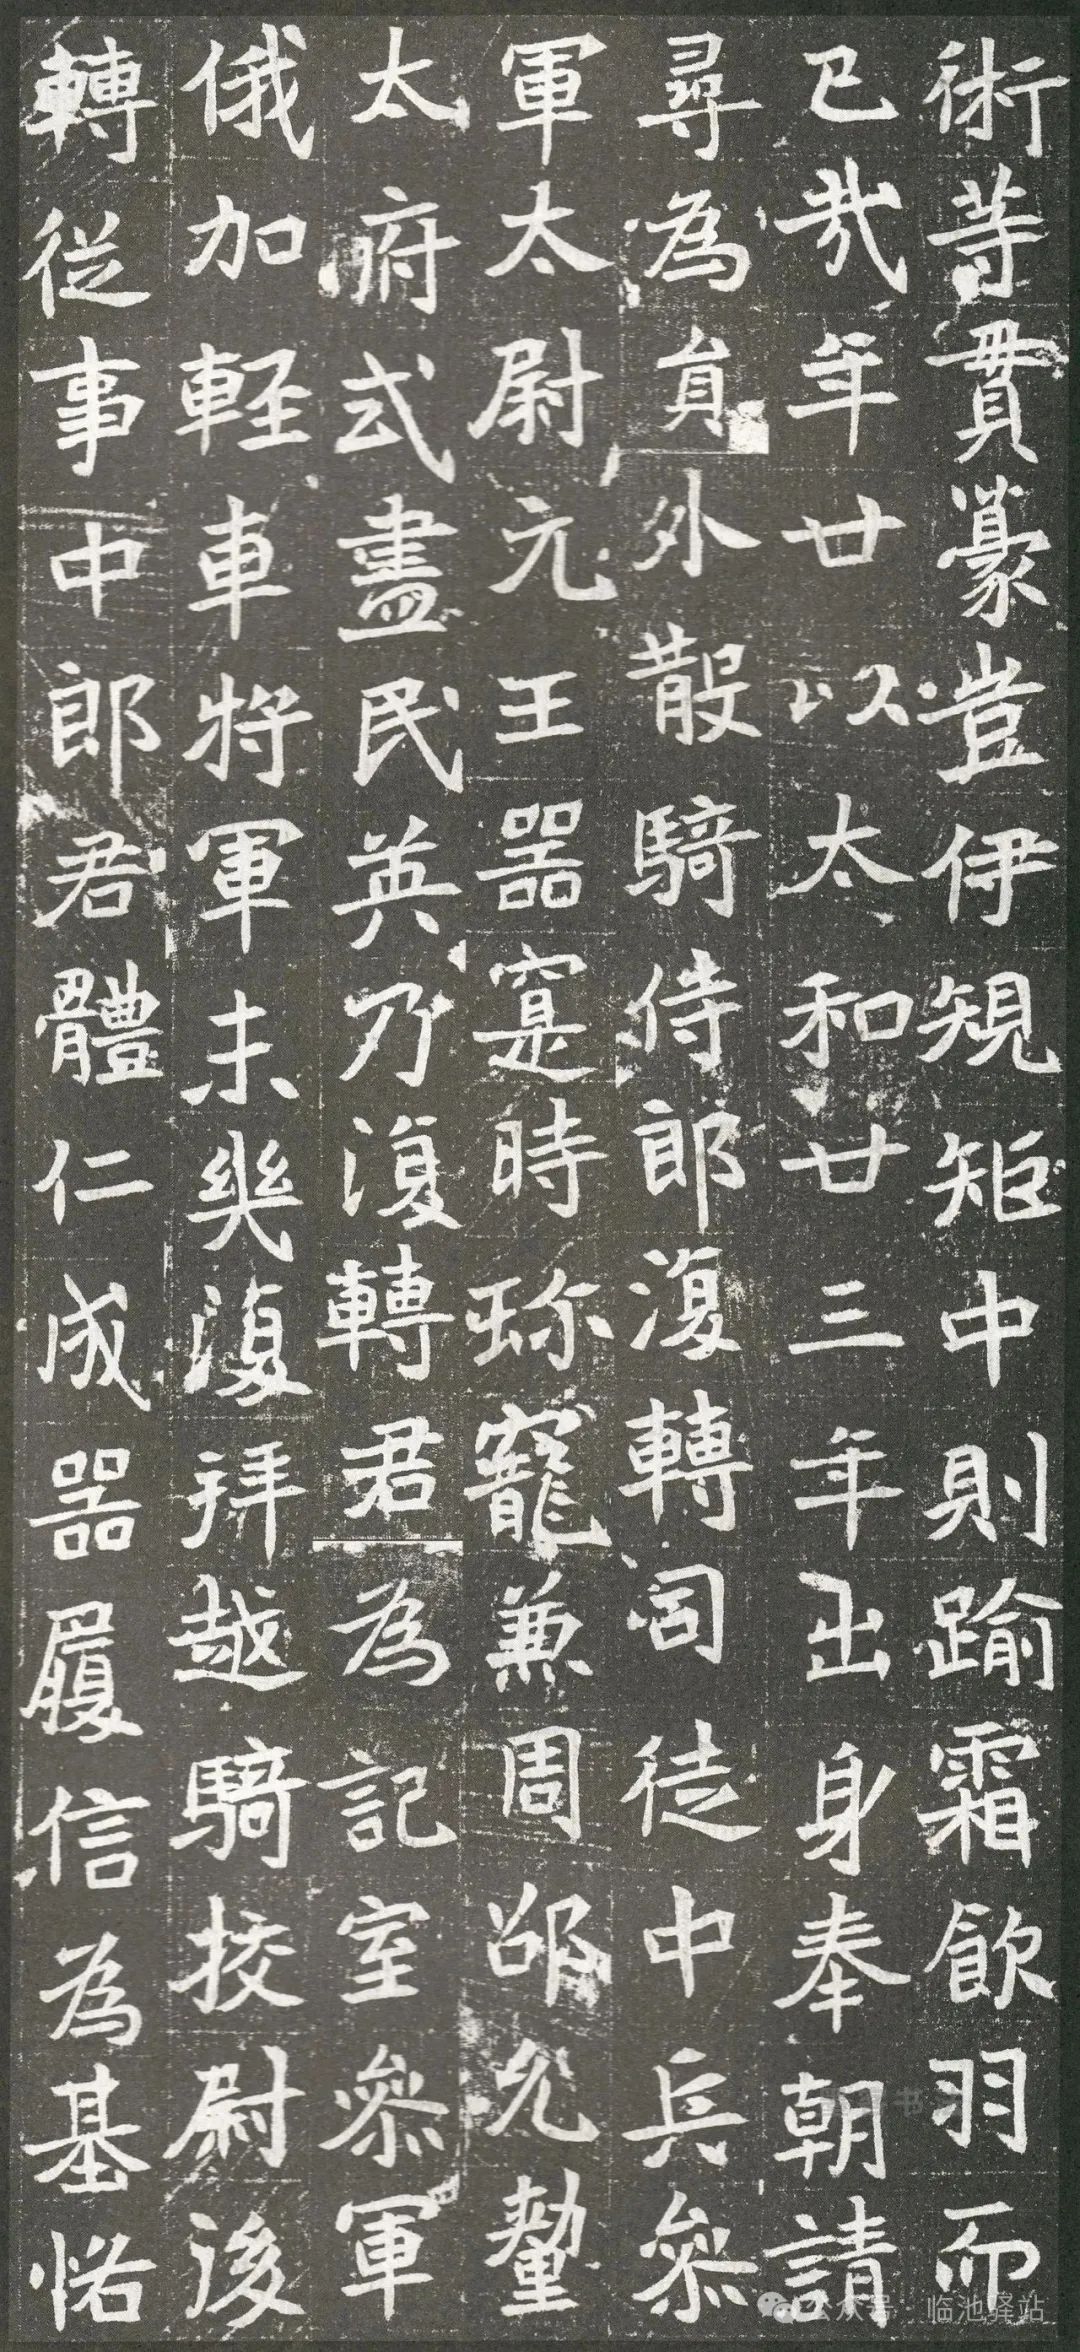 術等貫蒙豈伊規矩中則踰霜飲羽而
已哉年廿以太和廿三年出身奉朝請
尋為員外散騎侍郎復轉司徒中兵叅
軍太尉元王器寔時珎寵兼周邵允釐
太府式盡民英乃復轉君為記室叅軍
俄加軽車將軍未幾復拜越騎校尉後
轉從事中郎君體仁成器履信為基恪
公众号·临池驿站